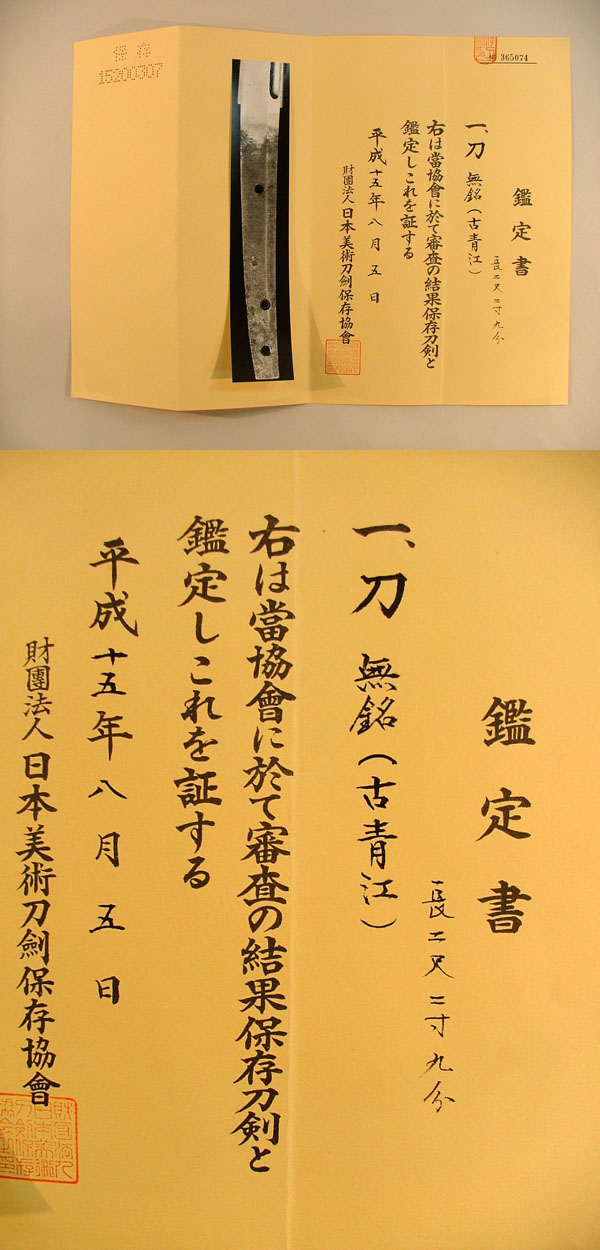 保存
15200307
No 365074
鑑定書
長二尺二寸九分
一、刀 無銘(古青江)
右は當協會に於て審査の結果保存刀剣と
鑑定しこれを証する
平成十五年八月五日
財團法人日本美術刀劍保存協會
鑑定書
長二尺二寸九分
一、刀 無銘(古青江)
右は當協會に於て審査の結果保存刀剣と
鑑定しこれを証する
平成十五年八月五日
財團法人日本美術刀劍保存協會